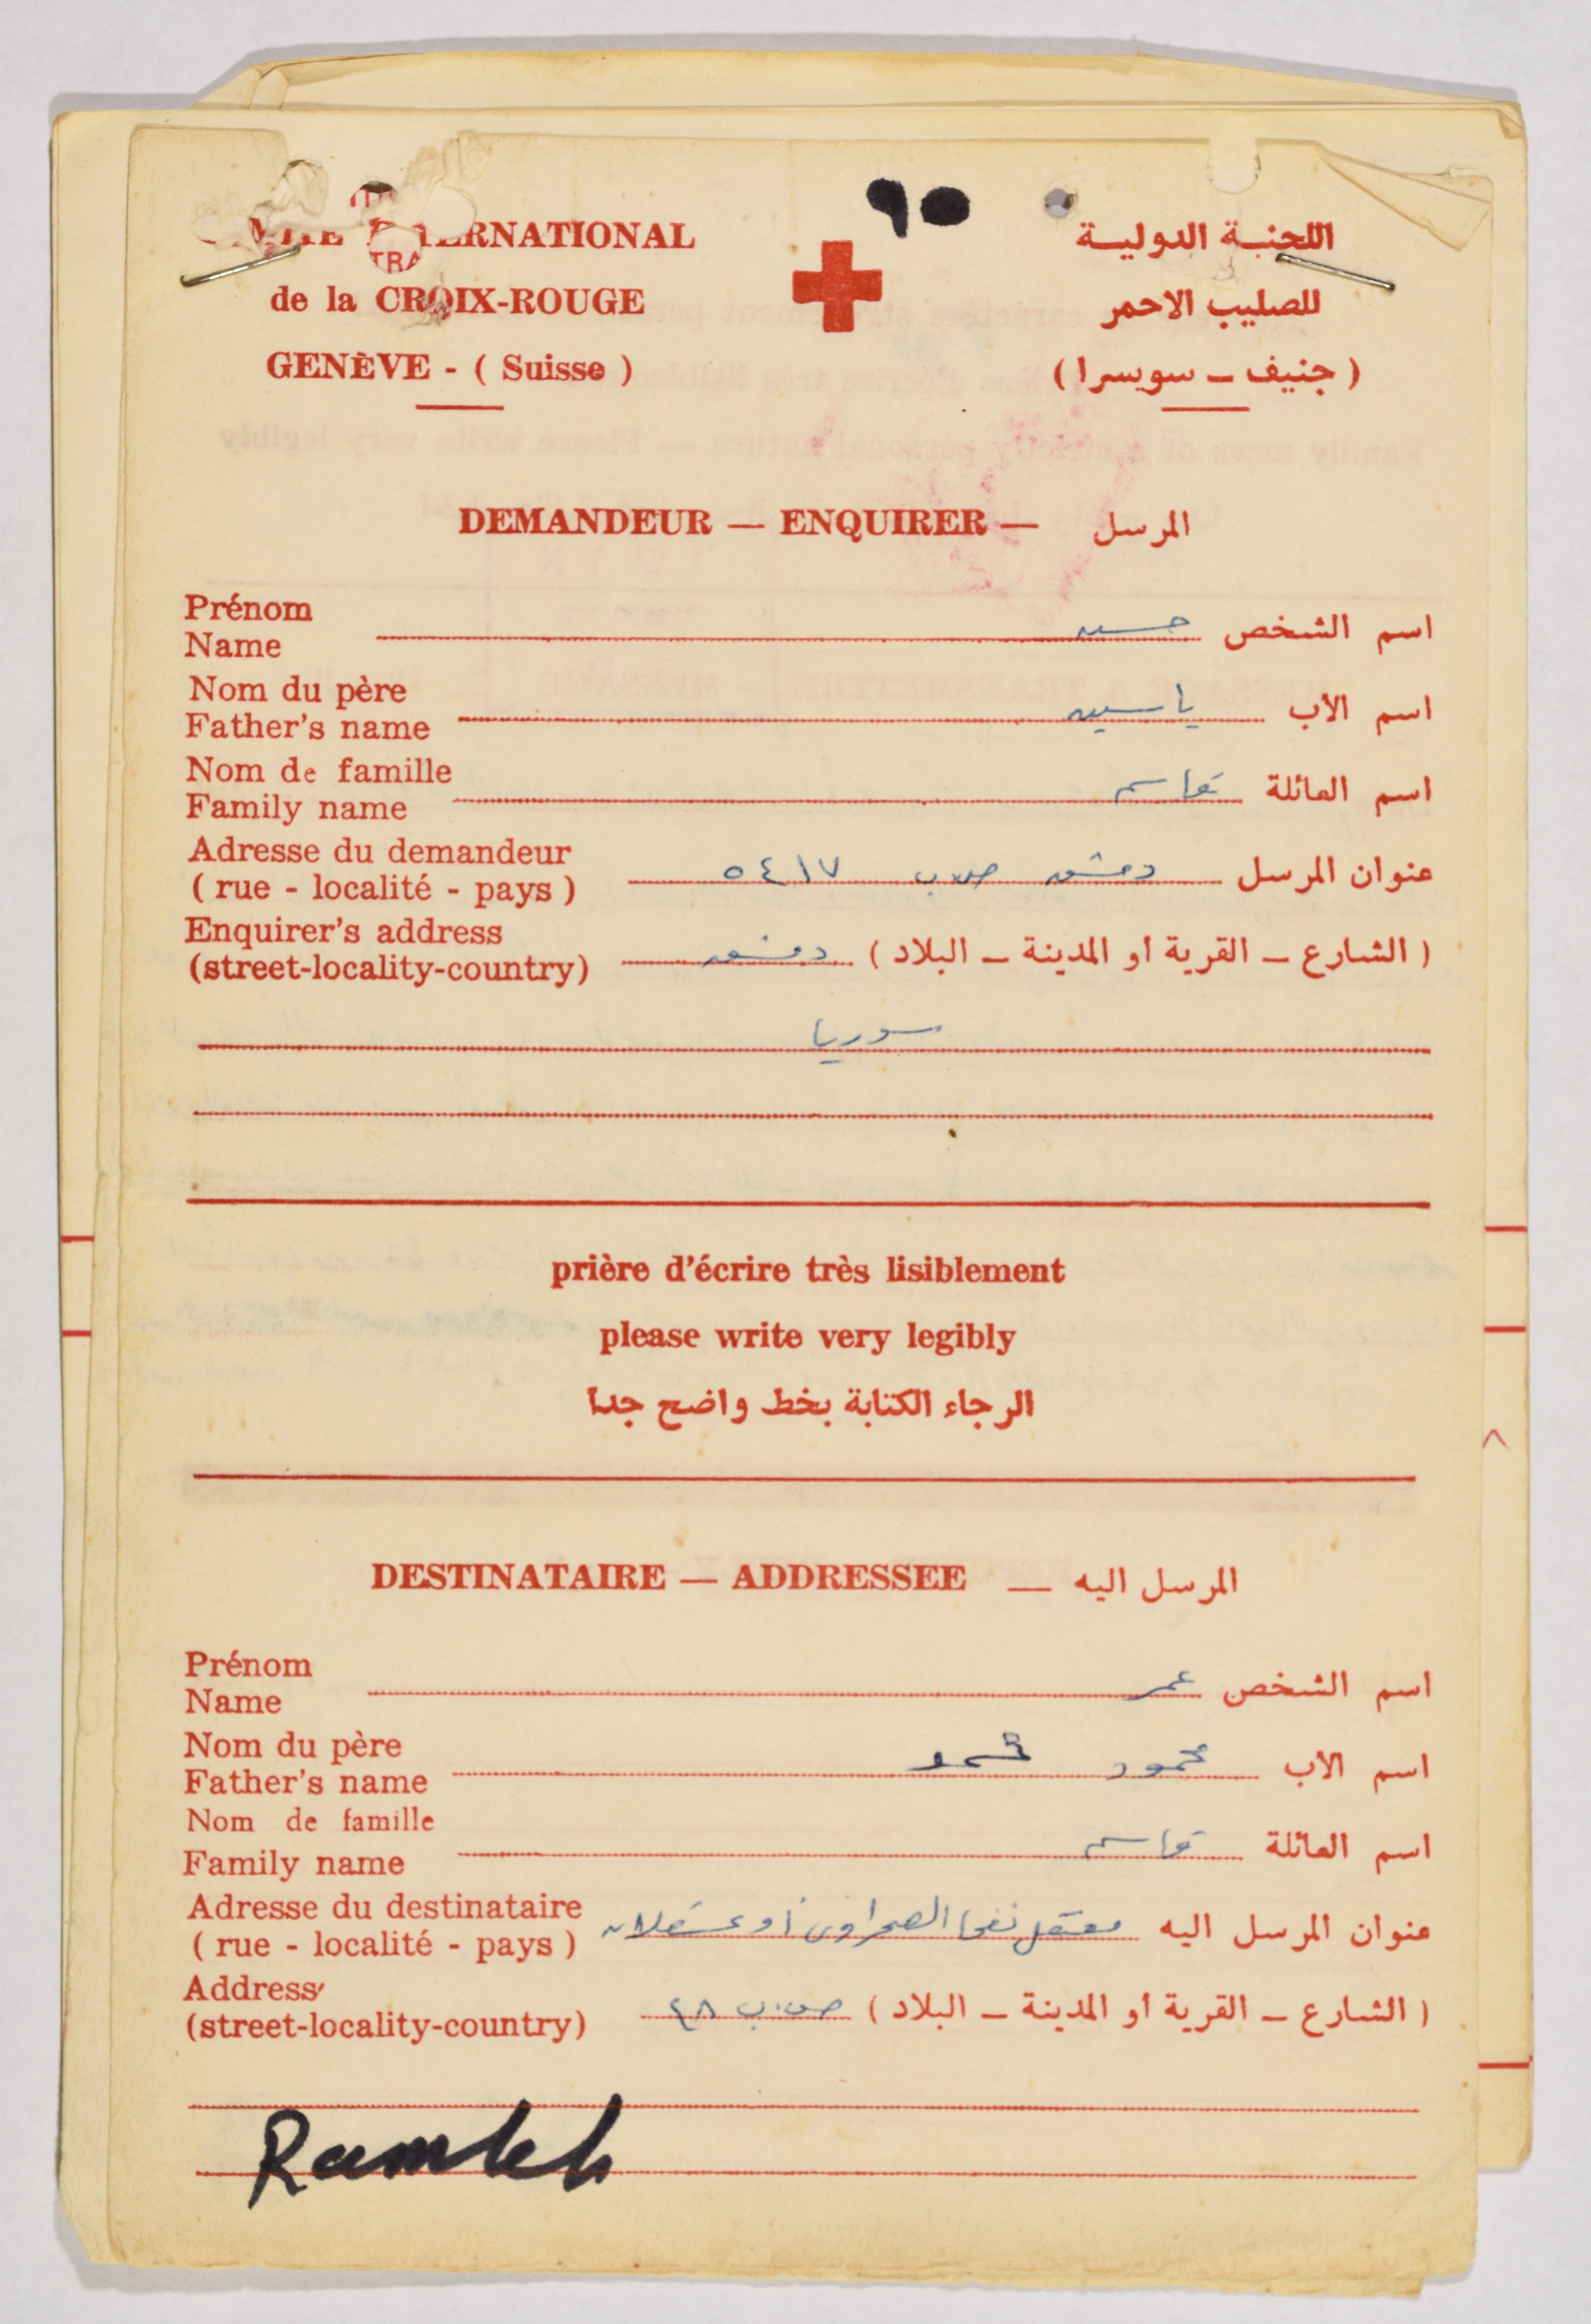 ٩٥
INTERNATIONAL اللجنة الدولية
TRA
de la CROIX-ROUGE للصليب الاحمر
GENÈVE - ( Suisse ) ( جنيف – سويسرا )
DEMANDEUR — ENQUIRER — المرسل
Prénom
Name حسين اسم الشخص
Nom du père
Father's name ياسين اسم الأب
Nom de famille
Family name قاسم اسم العائلة
Adresse du demandeur
( rue - localité - pays ) عنوان المرسل دمشق ص.ب ٥٤١٧
Enquirer's address
(street-locality-country) ( الشارع – القرية أو المدينة – البلاد ) دمشق
سوريا
prière d'écrire très lisiblement
please write very legibly
الرجاء الكتابة بخط واضح جدا
DESTINATAIRE — ADDRESSEE — المرسل اليه
Prénom
Name عمر اسم الشخص
Nom du père
Father's name اسم الاب محمود
Nom de famille
Family name قاسم اسم العائلة
Adresse du destinataire
( rue - localité - pays ) عنوان المرسل اليه معتقل نفحا الصحراوي أو عسقلان
Address
(street-locality-country) ( الشارع – القرية أو المدينة – البلاد ) ص.ب ٤٨
Ramleh